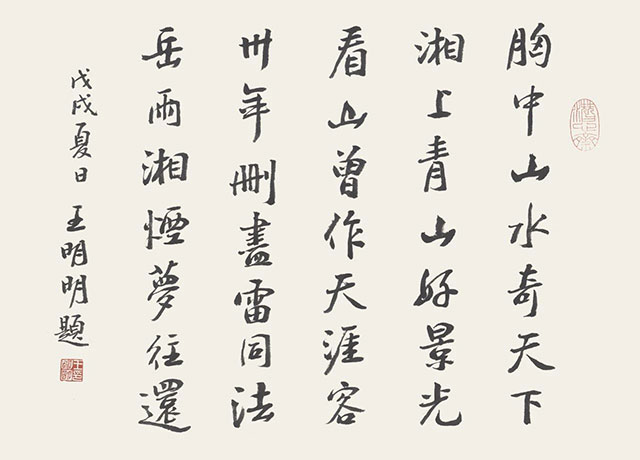 胸中山水奇天下
湘上青山好景光
看山曾作天涯客
卅年刪盡雷同法
岳雨湘煙夢往還
戊戌夏日 王明明題